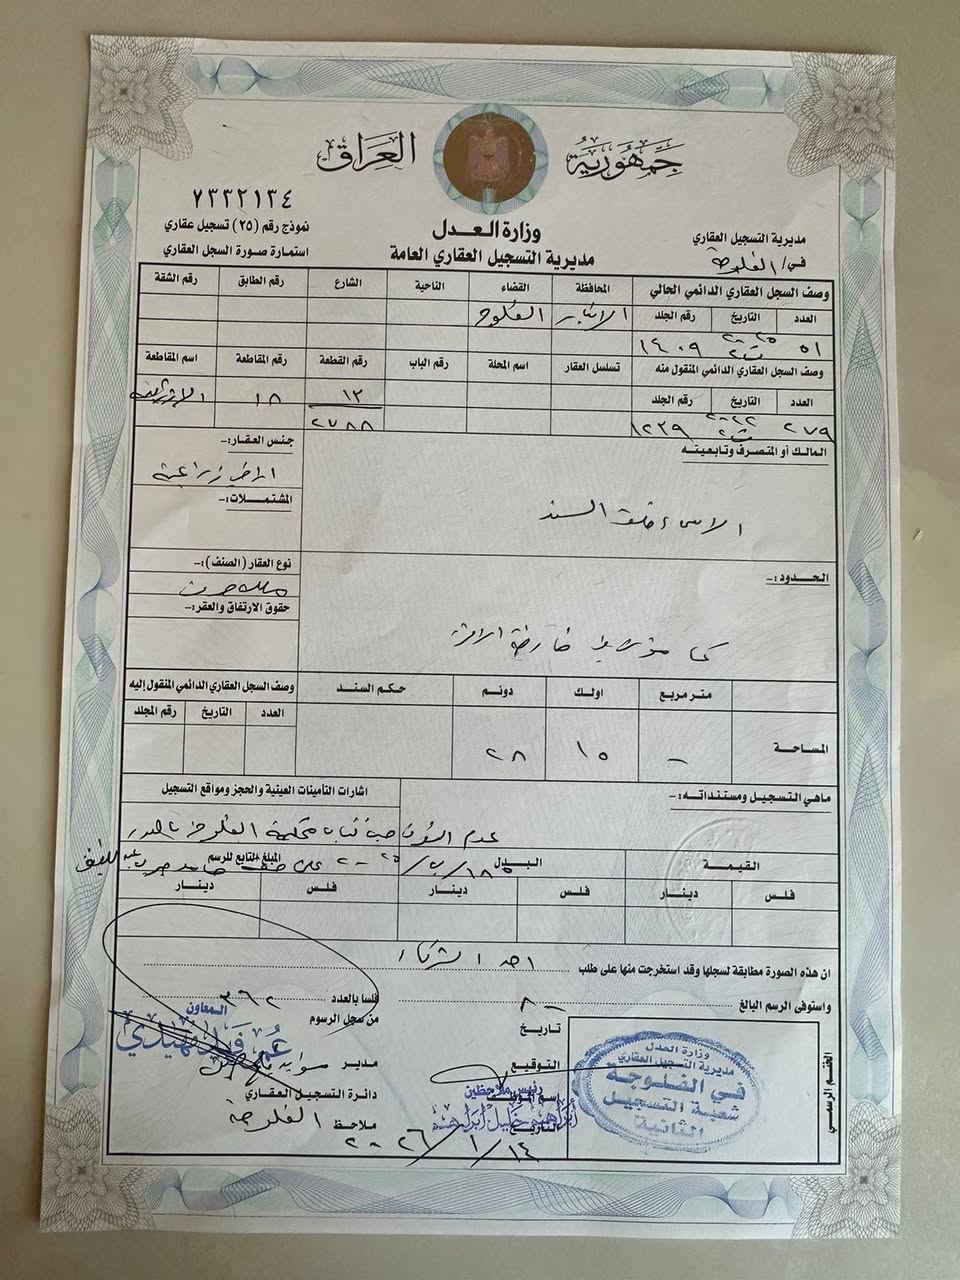 جمهورية العراق
٧٣٣٢١٣٤
وزارة العدل
مديرية التسجيل العقاري العامة
نموذج رقم (٢٥) تسجيل عقاري
استمارة صورة السجل العقاري
مديرية التسجيل العقاري
في/ الفلوجة
وصف السجل العقاري الدائمي الحالي المحافظة القضاء الناحية الشارع رقم الطابق رقم الشقة
العدد التاريخ رقم الجلد الانبار الفلوجة
٥١ ٢٠٢٥ ١٤٠٩
وصف السجل العقاري الدائمي المنقول منه تسلسل العقار اسم المحلة رقم الباب رقم القطعة رقم المقاطعة اسم المقاطعة
العدد التاريخ رقم الجلد ١٣ ١٨
٢٧٩ ٢٠٢٢ ١٢٣٩ ٢٧٨٨
المالك أو المتصرف وتابعيته
الاسماء خلف السند
جنس العقار:-
اراضي زراعية
المشتملات:-
نوع العقار (الصنف):-
ملك صرف
حقوق الارتفاق والعقر:-
الحدود:-
كما مؤشر خارطة
متر مربع اولك دونم حكم السند وصف السجل العقاري الدائمي المنقول إليه
العدد التاريخ رقم المجلد
المساحة - ١٥ ٢٨
ماهي التسجيل ومستنداته:-
اشارات التأمينات العينية والحجز ومواقع التسجيل
عدم كتاب محكمة الفلوجة بالعدد
القيمة البدل المبلغ التابع للرسم
٢٠٢٥ على حامد
فلس دينار فلس دينار فلس دينار
ان هذه الصورة مطابقة لسجلها وقد استخرجت منها على طلب احد الشركاء
واستوفى الرسم البالغ ٨٠٠٠ فلسا بالعدد ٣٦٢
تاريخ من سجل الرسوم
المعاون
عمر
التوقيع مدير
دائرة التسجيل العقاري
الفلوجة
ملاحظ
رئيس ملاحظين
ابراهيم خليل ابراهيم
التاريخ ٢٠٢٦/١/١٤
الختم الرسمي
وزارة العدل
مديرية التسجيل العقاري
في الفلوجة
شعبة التسجيل
الثانية